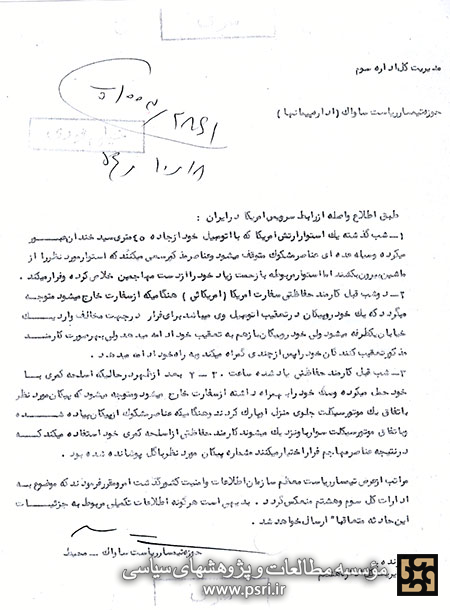 مدیریت کل اداره سوم
حوزه تیمسار ریاست ساواک (اداره پیمانها)
طبق اطلاع واصله از رابط سرویس امریکا در ایران :
۱ـ شب گذشته یک استوار ارتش امریکا که با اتومبیل خود از جاده ۴۵ متری سید خندان عبور
میکرده وسیله عده ای عناصر مشکوک متوقف میشود و عناصر مذکور سعی میکنند که استوار مورد نظر را از
ماشین بیرون بکشند اما استوار مربوطه با زحمت زیاد خود را از دست مهاجمین خلاص کرده و فرار میکند .
۲ـ دو شب قبل کارمند حفاظتی سفارت امریکا (امریکائی) هنگامیکه از سفارت خارج میشود متوجه
میگردد که یک خودرو پیکان در تعقیب اتومبیل وی میباشد برای فرار وارد جهت مخالف یک
خیابان یکطرفه میشود ولی خودرو پیکان باز هم به تعقیب خود ادامه میدهد ولی بهر صورت کارمند
مذکور تعقیب کنندگان خود را پس از چندی گمراه میکند و به راه خود ادامه میدهد .
۳ـ شب قبل کارمند حفاظتی یاد شده ساعت ۲۰۳۰ بعد از ظهر در حالیکه اسلحه کمری با
خود حمل میکرده و سگ خود را به همراه داشته از سفارت خارج میشود و متوجه میشود که پیکان مورد نظر
باتفاق یک موتورسیکلت جلوی منزل او پارک کردند و هنگامیکه عناصر مشکوک از پیکان پیاده شده
و باتفاق موتورسیکلت سوار باو نزدیک میشوند کارمند حفاظتی از اسلحه کمری خود استفاده میکند که
در نتیجه عناصر مهاجم فرار اختیار میکنند شماره پیکان مورد نظر با گل پوشانده شده بود .
مراتب از عرض تیمسار ریاست معظم سازمان اطلاعات و امنیت کشور گذشت امر و مقرر فرمودند که موضوع به
ادارات کل سوم و هشتم منعکس گردد . بدیهی است هر گونه اطلاعات تکمیلی مربوط به جزئیات
این حادثه متعاقبا" ارسال خواهد شد .
حوزه تیمسار ریاست ساواک ـ
موسسه مطالعات و پژوهشهای سیاسی
www.psri.ir